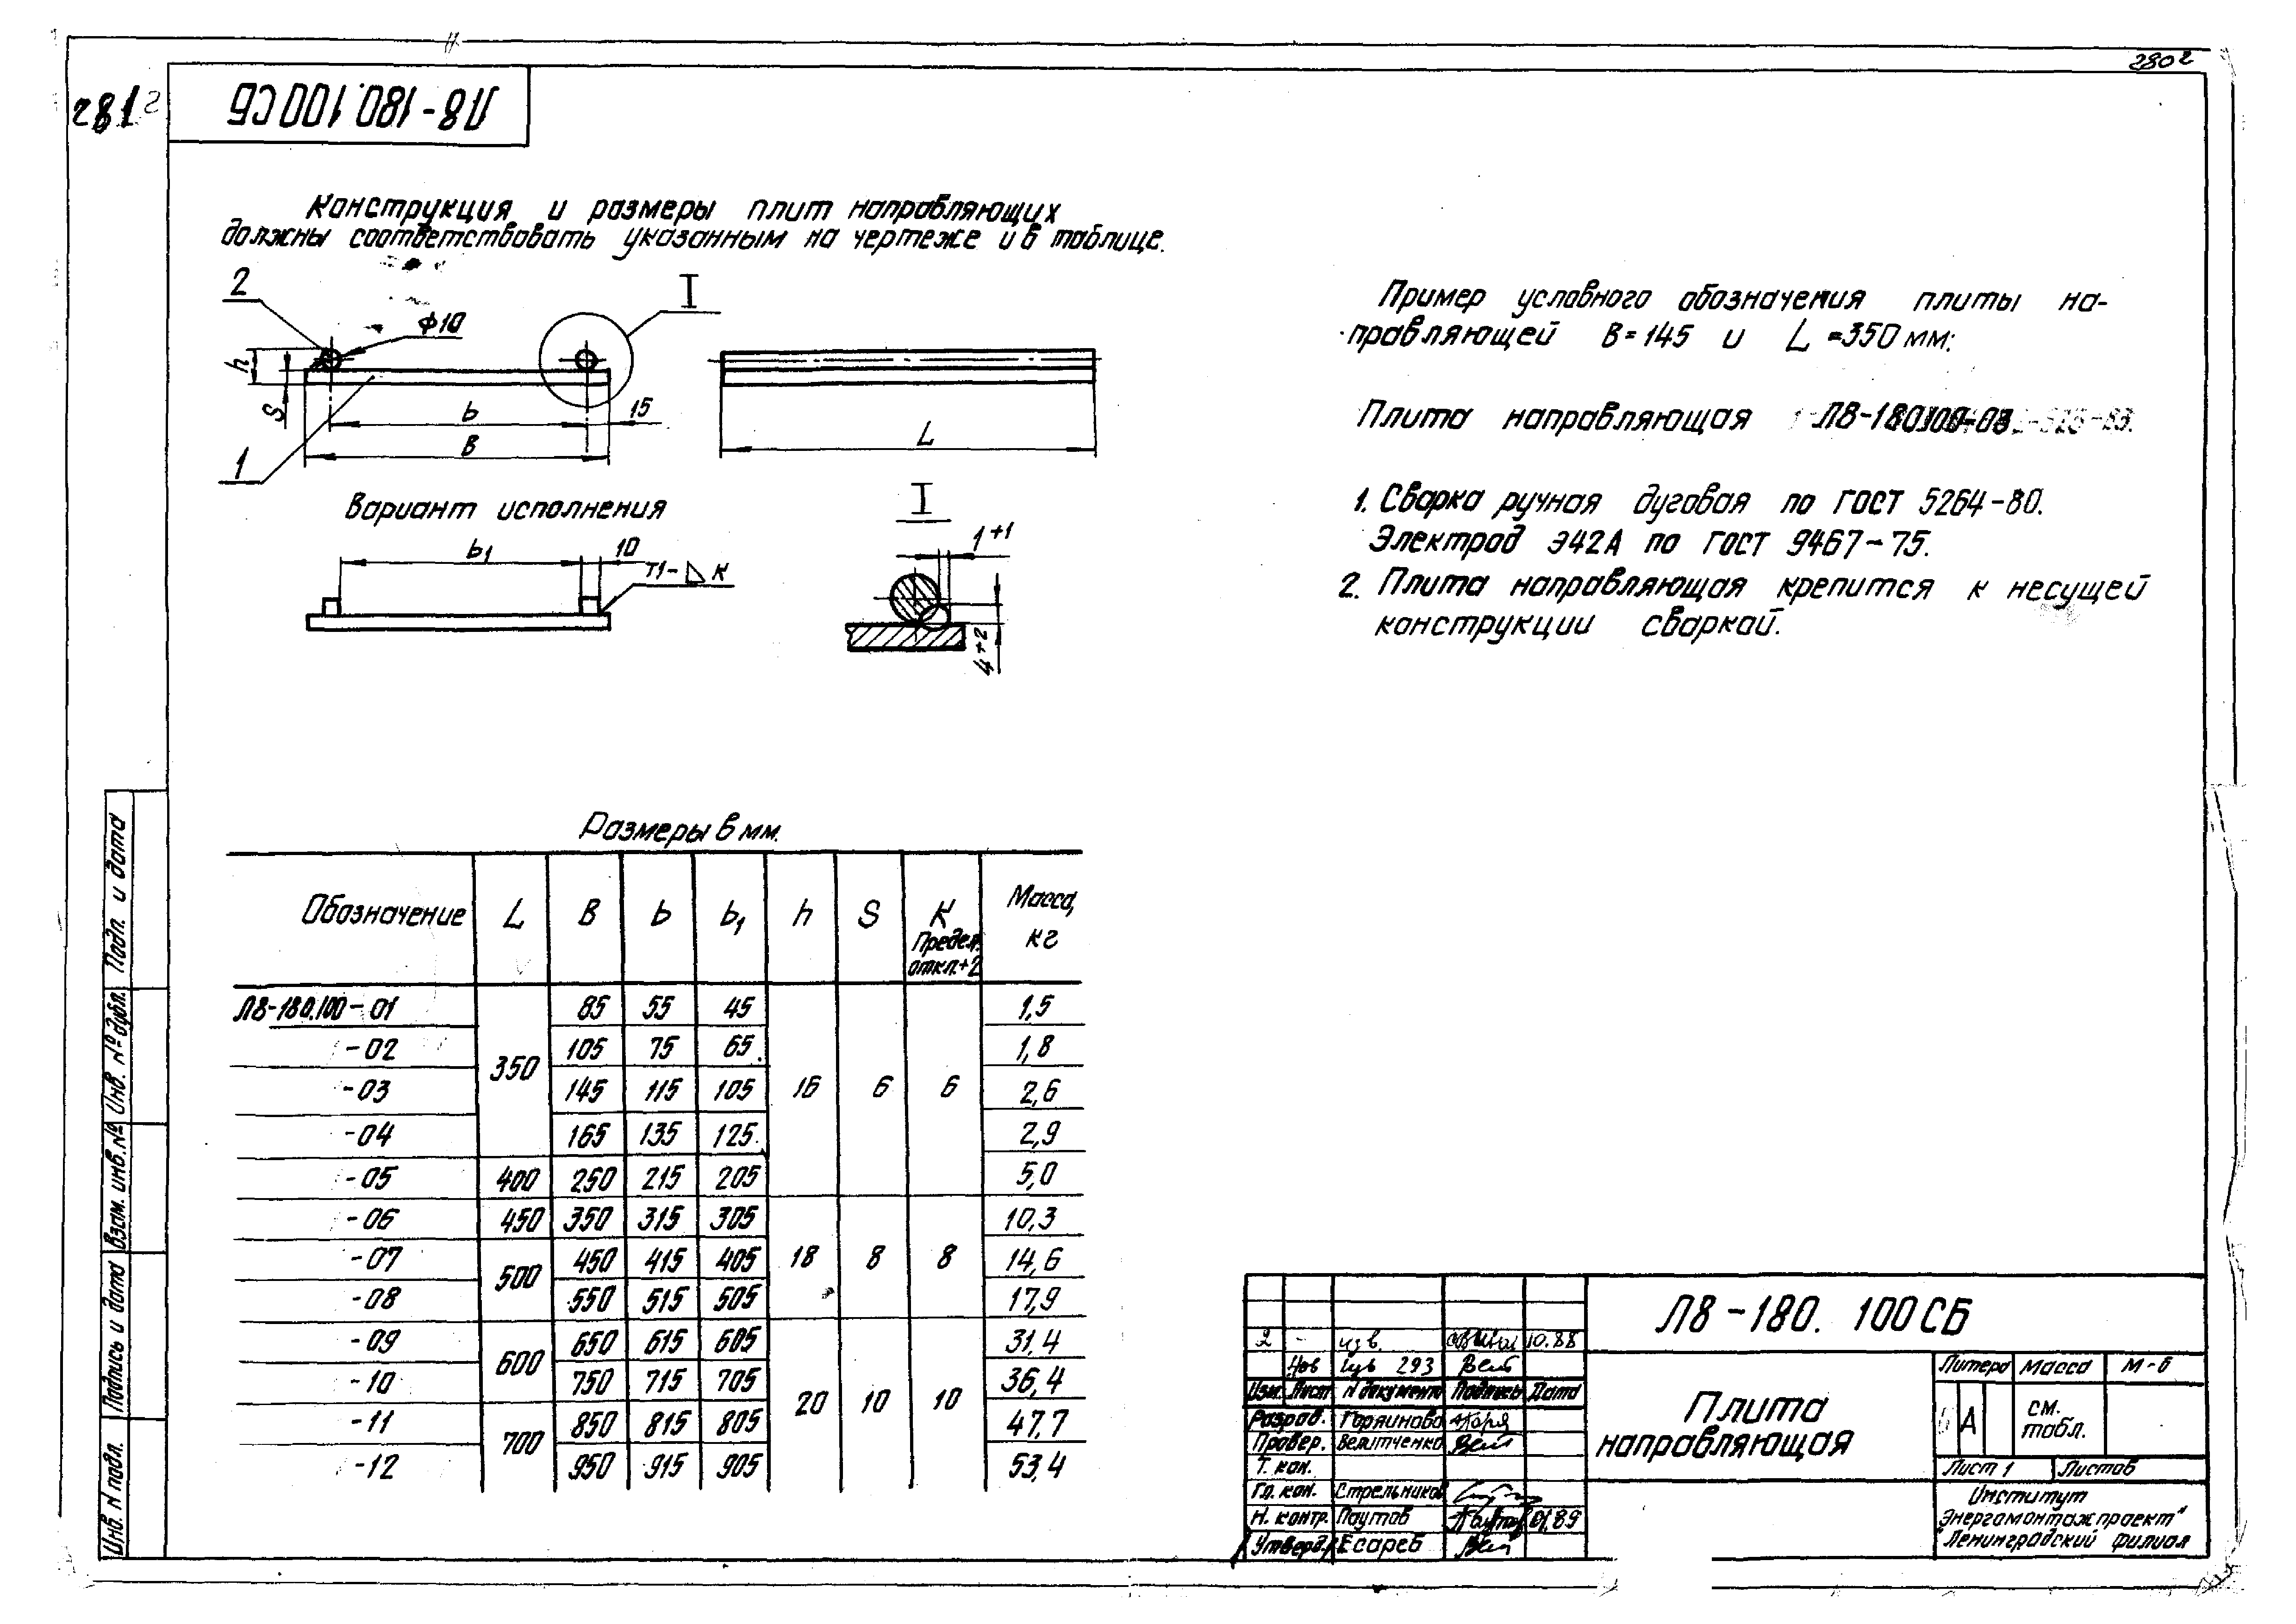 2802
2812
Л8-180.100СБ
Конструкция и размеры плит направляющих
должны соответствовать указанным на чертеже и в таблице.
2
I
ф10
h
S
b
15
B
1
L
Вариант исполнения
b1
10
Т1-△ К
I
1+1
4+2
Пример условного обозначения плиты на-
правляющей В=145 и L=350мм:
Плита направляющая Л8-180.100-03
1. Сварка ручная дуговая по ГОСТ 5264-80.
Электрод Э42А по ГОСТ 9467-75.
2. Плита направляющая крепится к несущей
конструкции сваркой.
Размеры в мм.
Обозначение L B b b1 h S К Предел. откл.+2 Масса, кг
Л8-180.100-01 350 85 55 45 16 6 6 1,5
-02 105 75 65 1,8
-03 145 115 105 2,6
-04 165 135 125 2,9
-05 400 250 215 205 5,0
-06 450 350 315 305 18 8 8 10,3
-07 500 450 415 405 14,6
-08 550 515 505 17,9
-09 600 650 615 605 20 10 10 31,4
-10 750 715 705 36,4
-11 700 850 815 805 47,7
-12 950 915 905 53,4
Подп. и дата
Инв. № дубл.
Взам. инв. №
Подпись и дата
Инв. N подл.
2 - изв. 10.88
Нов 293
Изм. Лист N документа Подпись Дата
Разраб. Горяинова
Провер. Велитченко
Т. кон.
Гл. кон. Стрельников
Н. контр. Паутов 01.89
Утверд. Есарев
Л8-180. 100СБ
Плита
направляющая
Литера Масса М-б
А см. табл.
Лист 1 Листов
Институт
"Энергомонтажпроект"
Ленинградский филиал